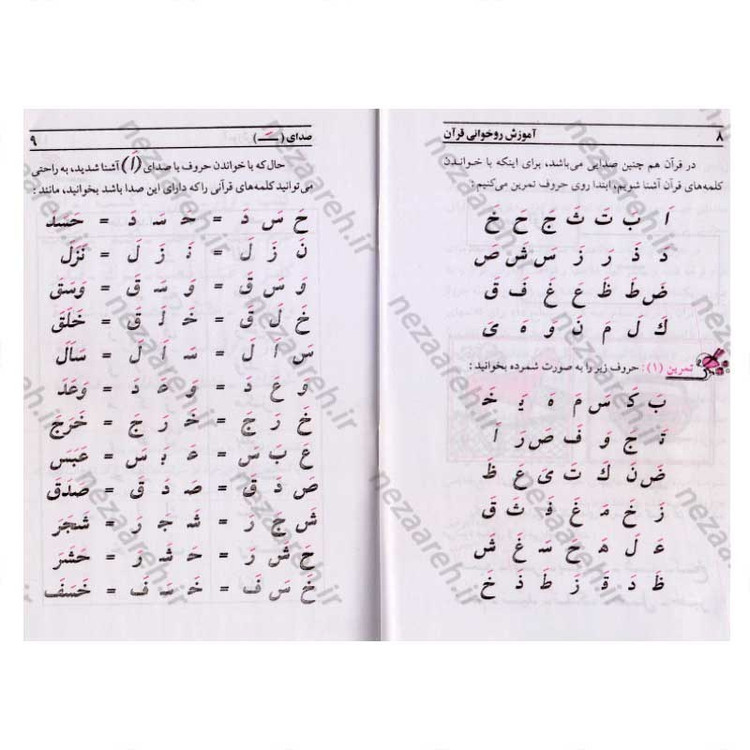 ۸ آموزش روخوانی قرآن
در قرآن هم چنین صدایی می‌باشد، برای اینکه با خواندن
کلمه‌های قرآن آشنا شویم، ابتدا روی حروف تمرین می‌کنیم :
اَ بَ تَ ثَ جَ حَ خَ
دَ ذَ رَ زَ سَ شَ صَ
ضَ طَ ظَ عَ غَ فَ قَ
كَ لَ مَ نَ وَ هَ یَ
تمرین (۱) : حروف زیر را به صورت شمرده بخوانید :
بَ كَ سَ مَ هَ یَ خَ
تَ جَ وَ فَ صَ رَ اَ
ضَ نَ كَ تَ یَ عَ ظَ
زَ خَ مَ غَ فَ ثَ قَ
عَ لَ هَ حَ سَ غَ شَ
ظَ دَ ةَ زَ طَ ذَ خَ
صدای (ـَـ) ۹
حال که با خواندن حروف با صدای (اَ) آشنا شدید، به راحتی
می‌توانید کلمه‌های قرآنی را که دارای این صدا باشد بخوانید، مانند :
حَ سَ دَ = حَـ سَـ دَ = حَسَدَ
نَ زَ لَ = نَـ زَ لَ = نَزَلَ
وَ سَ قَ = وَ سَـ قَ = وَسَقَ
خَ لَ قَ = خَـ لَـ قَ = خَلَقَ
سَ اَ لَ = سَـ اَ لَ = سَاَلَ
وَ عَ دَ = وَ عَـ دَ = وَعَدَ
خَ رَ جَ = خَـ رَ جَ = خَرَجَ
عَ بَ سَ = عَـ بَـ سَ = عَبَسَ
صَ دَ قَ = صَـ دَ قَ = صَدَقَ
شَ جَ رَ = شَـ جَـ رَ = شَجَرَ
حَ شَ رَ = حَـ شَـ رَ = حَشَرَ
خَ سَ فَ = خَـ سَـ فَ = خَسَفَ
nezaareh.ir